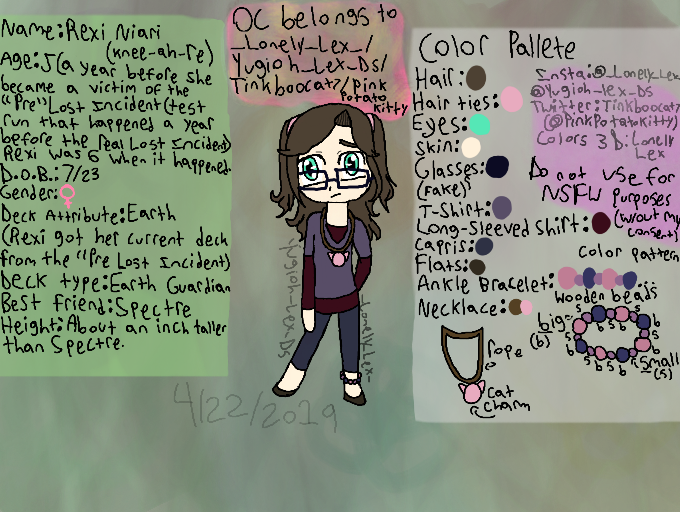 Name:Rexi Niari
(Knee-ah-re)
Age:5(a year before she
became a victim of the
"Pre"Lost Incident(test
run that happened a year
before the real Lost Incident)
Rexi was 6 when it happened.
D.O.B.: 7/23
Gender:♀
Deck Attribute:Earth
(Rexi got her current deck
from the "Pre Lost Incident)
Deck type:Earth Guardian
Best friend:Spectre
Height:About an inch taller
than Spectre.
OC belongs to
_Lonely_Lex_/
Yugioh_Lex_Ds/
Tinkboocat7/Pink
Potato
Kitty
yugioh_Lex_Ds
_Lonely_Lex_
4/22/2019
Color Pallete
Hair:
Hair ties:
Eyes:
Skin:
Glasses:
(Fake)
T-Shirt:
Long-Sleeved shirt:
Capris:
Flats:
Ankle Bracelet:
Necklace:
Insta:@_Lonely_Lex_
@Yugioh_Lex_Ds
Twitter:Tinkboocat7
(@PinkPotatoKitty)
Colors 3 D:Lonely
Lex
Do not use for
NSFW purposes
(w/out my
consent)
Color pattern
Wooden beads
big=
(b)
s s s s s s s
b b b b b b b
Small
=(s)
Rope
Cat
charm